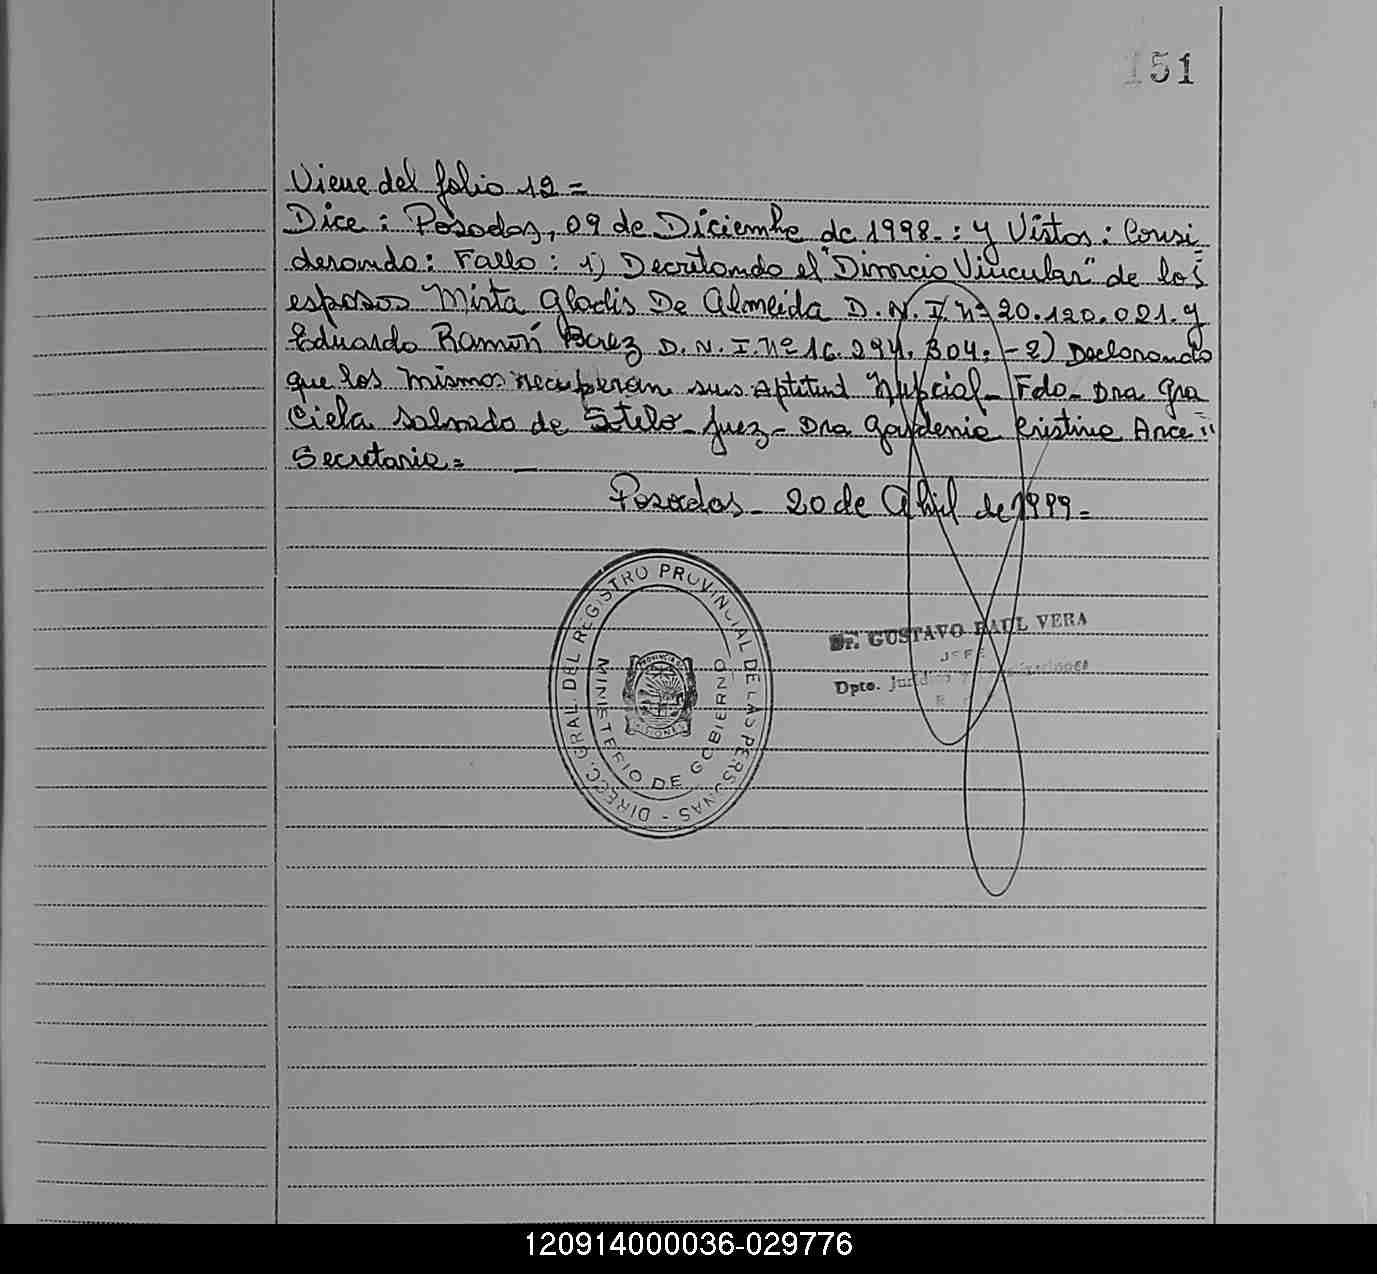 151
Viene del folio 12=
Dice: Posadas, 09 de Diciembre de 1998-: y Vistos: Consi
derando: Fallo: 1) Decretando el "Divorcio Vincular" de los
esposos Mirta Gladis De Almeida D.N.I. Nº 20.120.021. y
Eduardo Ramón D.N.I. Nº 16.294.304.-2) Declarando
que los mismos recuperan sus Aptitud Nupcial_ Fdo_ Dra Gra
ciela Salvado de Sotelo_ Juez_ Dra Gardenia Cristina Arce"
Secretaria=
Posadas_ 20 de Abril de 1999=
DIRECC. GRAL. DEL REGISTRO PROVINCIAL DE LAS PERSONAS -
MINISTERIO DE GOBIERNO
PROVINCIA
MISIONES
Dr. GUSTAVO RAUL VERA
JEFE
Dpto.
120914000036-029776